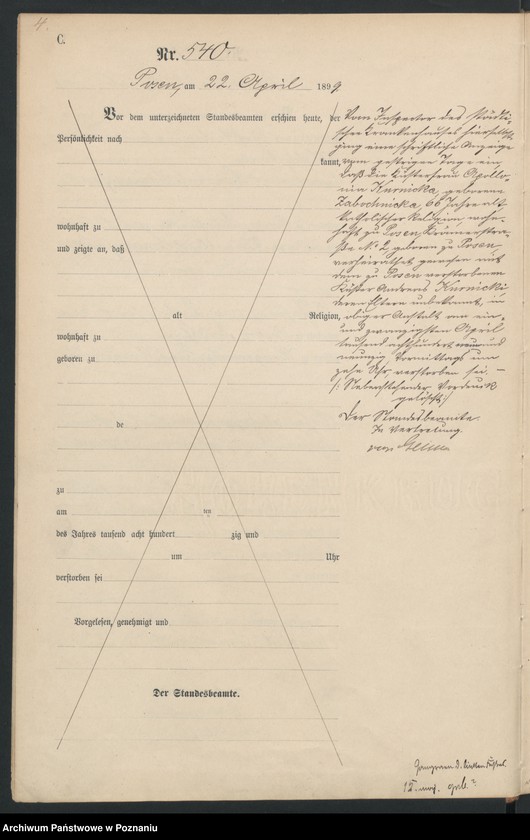 4.
C.
Nr. 540.
Posen, am 22. April 1899
Vor dem unterzeichneten Standesbeamten erschien heute, der
Persönlichkeit nach
kannt,
wohnhaft zu
und zeigte an, daß
alt Religion,
wohnhaft zu
geboren zu
de
zu
am ten
des Jahres tausend acht hundert zig und
um Uhr
verstorben sei
Vorgelesen, genehmigt und
Der Standesbeamte.
Vom Inspector des städti-
schen Krankenhauses hierselbst
ging eine schriftliche Anzeige
vom gestrigen Tage ein,
daß die Küsterfrau Apollo-
nia Kurnicka, geborene
Zabochnicka, 66 Jahre alt
katholischer Religion, wohn-
haft zu Posen,
ße No 2, geboren zu Posen,
verheirathet gewesen mit
dem zu Posen verstorbenen
Küster Andreas Kurnicki,
deren Eltern unbekannt, in
obiger Anstalt am ein-
und zwanzigsten April
tausend achthundert neun und
neunzig, Vormittags um
zehn Uhr, verstorben sei. —
/: Nebenstehender Vordruck
gelöscht :/
Der Standesbeamte.
In Vertretung
Archiwum Państwowe w Poznaniu